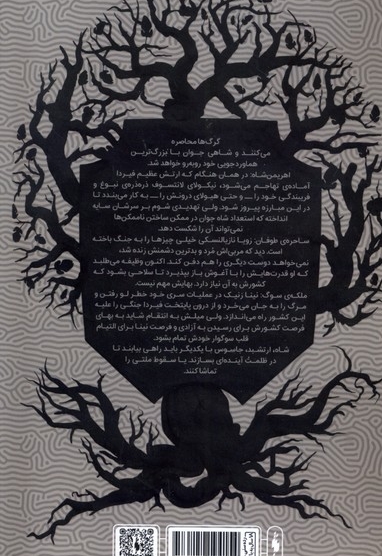 گرگ‌ها محاصره
می‌کنند و شاهی جوان با بزرگ‌ترین
هماوردجویی خود روبه‌رو خواهد شد.
اهریمن‌شاه: در همان هنگام که ارتش عظیم فیردا
آماده‌ی تهاجم می‌شود، نیکولای لانتسوف ذره‌ذره‌ی نبوغ و
فریبندگی خود را ــ و حتی هیولای درونش را ــ به کار می‌بندد تا
در این مبارزه پیروز شود. ولی تهدیدی شوم بر سرشان سایه
انداخته که استعداد شاه جوان در ممکن ساختن ناممکن‌ها
نمی‌تواند آن را شکست دهد.
ساحره‌ی طوفان: زویا نازیالنسکی خیلی چیزها را به جنگ باخته
است. دید که مربی‌اش مُرد و بدترین دشمنش زنده شد،
نمی‌خواهد دوست دیگری را هم دفن کند. اکنون وظیفه می‌طلبد
که او قدرت‌هایش را با آغوش باز بپذیرد تا سلاحی بشود که
کشورش به آن نیاز دارد. بهایش مهم نیست.
ملکه‌ی سوگ: نینا زنیک در عملیات سری خود خطر لو رفتن و
مرگ را به جان می‌خرد و از درون پایتخت فیردا جنگی را علیه
این کشور راه می‌اندازد. ولی میلش به انتقام شاید به بهای
فرصت کشورش برای رسیدن به آزادی و فرصت نینا برای التیام
قلب سوگوار خودش تمام بشود.
شاه، ارتشبد، جاسوس: با یکدیگر باید راهی بیابند تا
در ظلمت آینده‌ای بسازند. یا سقوط ملتی را
تماشا کنند.